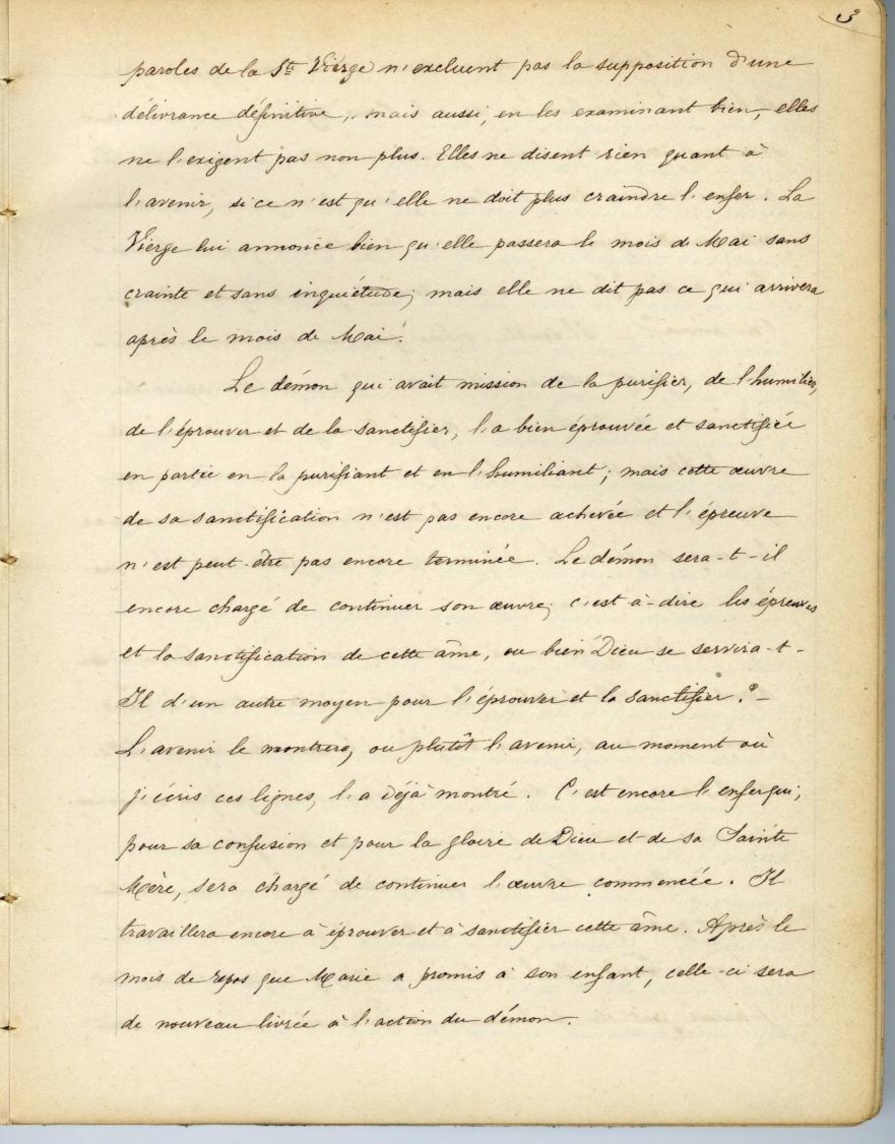 3
paroles de la Ste Vierge n'excluent pas la supposition d'une
délivrance définitive, mais aussi, en les examinant bien, elles
ne l'exigent pas non plus. Elles ne disent rien quant à
l'avenir, si ce n'est qu'elle ne doit plus craindre l'enfer. La
Vierge lui annonce bien qu'elle passera le mois de Mai sans
crainte et sans inquiétude; mais elle ne dit pas ce qui arrivera
après le mois de Mai.
Le démon qui avait mission de la purifier, de l'humilier,
de l'éprouver et de la sanctifier, l'a bien éprouvée et sanctifiée
en partie en la purifiant et en l'humiliant; mais cette œuvre
de sa sanctification n'est pas encore achevée et l'épreuve
n'est peut-être pas encore terminée. Le démon sera-t-il
encore chargé de continuer son œuvre, c'est-à-dire les épreuves
et la sanctification de cette âme, ou bien Dieu se servira-t-
Il d'un autre moyen pour l'éprouver et la sanctifier? –
L'avenir le montrera, ou plutôt l'avenir, au moment où
j'écris ces lignes, l'a déjà montré. C'est encore l'enfer qui,
pour sa confusion et pour la gloire de Dieu et de sa Sainte
Mère, sera chargé de continuer l'œuvre commencée. Il
travaillera encore à éprouver et à sanctifier cette âme. Après le
mois de repos que Marie a promis à son enfant, celle-ci sera
de nouveau livrée à l'action du démon.